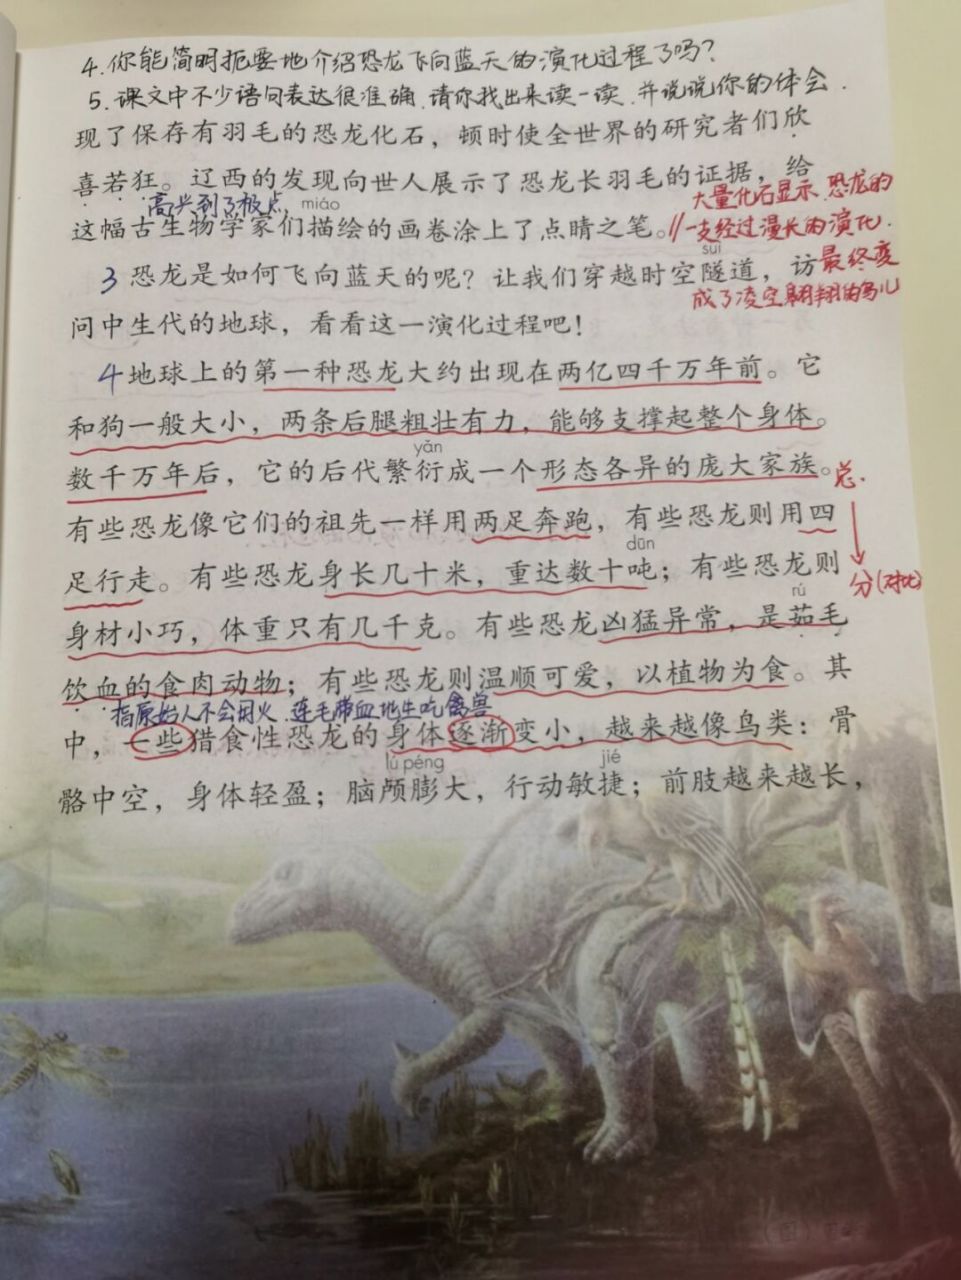 4.你能简明扼要地介绍恐龙飞向蓝天的演化过程了吗？
5.课文中不少语句表达很准确.请你找出来读一读.并说说你的体会.
现了保存有羽毛的恐龙化石，顿时使全世界的研究者们欣
喜若狂。辽西的发现向世人展示了恐龙长羽毛的证据，给
高兴到了极点 miáo
大量化石显示.恐龙的
这幅古生物学家们描绘的画卷涂上了点睛之笔。//
一支经过漫长的演化.
suì
3 恐龙是如何飞向蓝天的呢？让我们穿越时空隧道，访
最终变
成了凌空翱翔的鸟儿
问中生代的地球，看看这一演化过程吧！
4 地球上的第一种恐龙大约出现在两亿四千万年前。它
和狗一般大小，两条后腿粗壮有力，能够支撑起整个身体。
yǎn
数千万年后，它的后代繁衍成一个形态各异的庞大家族。
总.
有些恐龙像它们的祖先一样用两足奔跑，有些恐龙则用四
dūn
足行走。有些恐龙身长几十米，重达数十吨；有些恐龙则
分(对比)
rú
身材小巧，体重只有几千克。有些恐龙凶猛异常，是茹毛
饮血的食肉动物；有些恐龙则温顺可爱，以植物为食。其
指原始人不会用火.连毛带血地生吃禽兽
中，一些猎食性恐龙的身体逐渐变小，越来越像鸟类：骨
lú péng jié
骼中空，身体轻盈；脑颅膨大，行动敏捷；前肢越来越长，